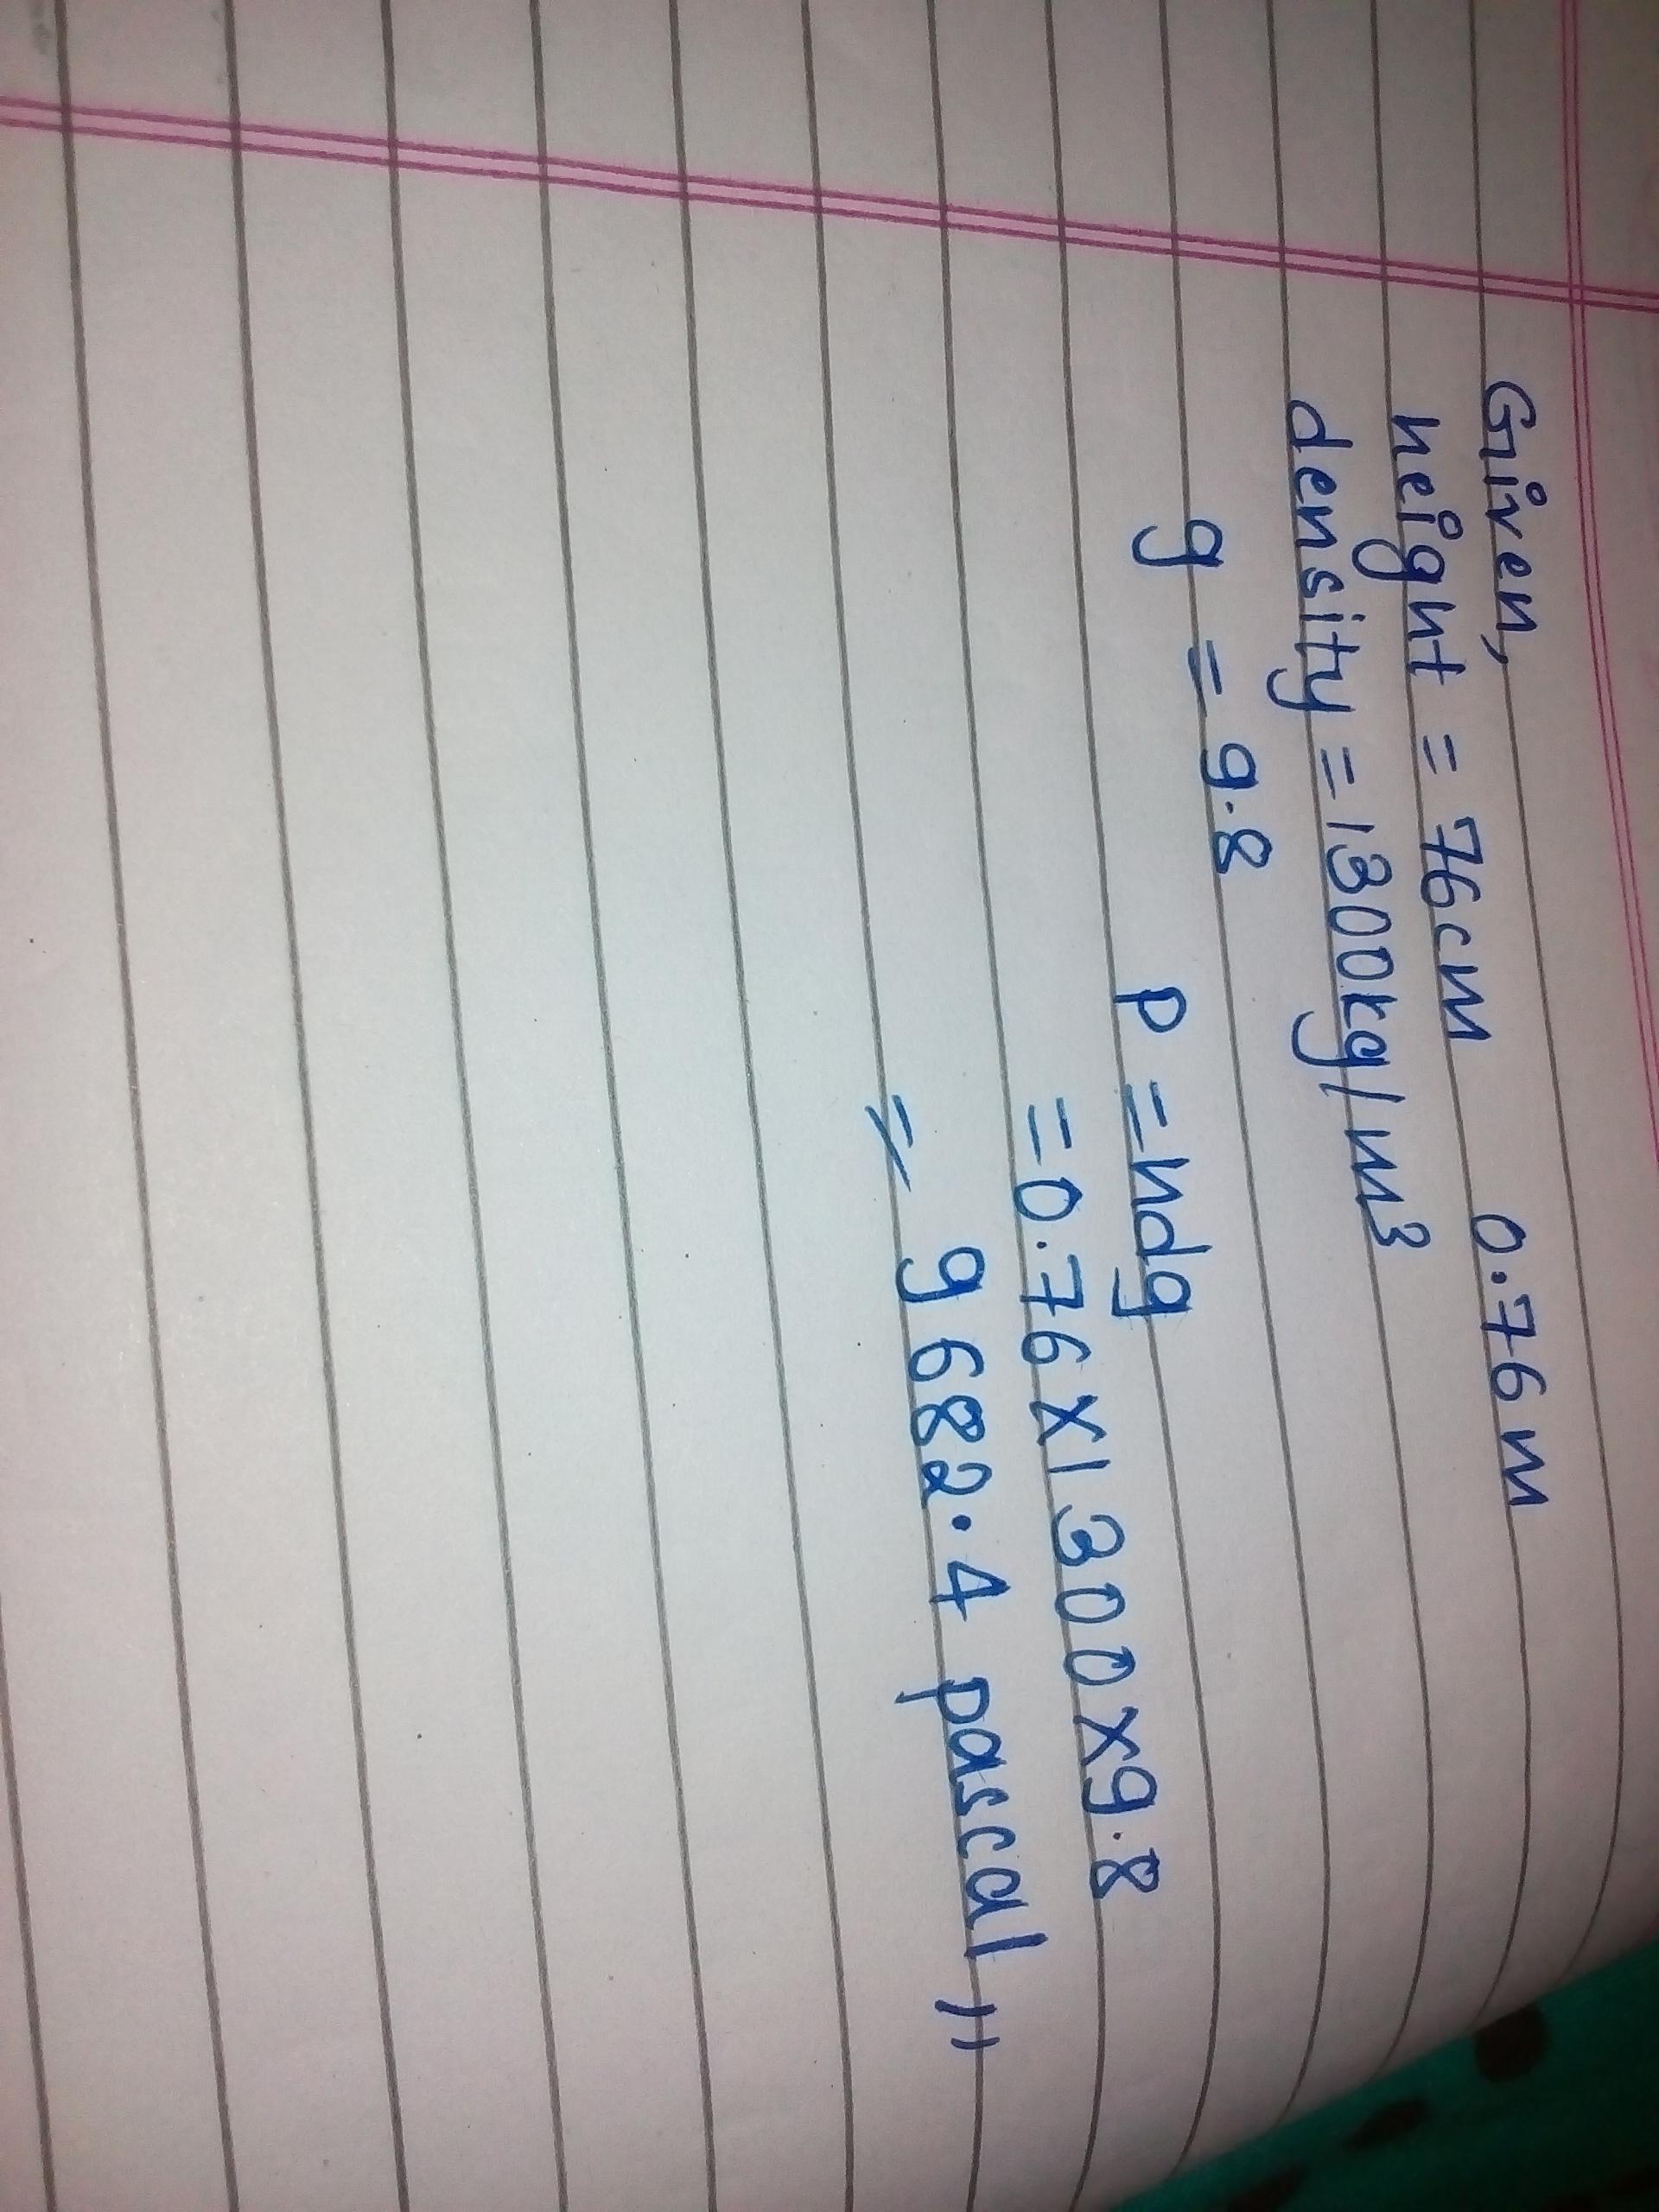 Given,
height = 76cm 0.76m
density = 1300kg/m³
g = 9.8
p = hdg
= 0.76x1300x9.8
= 9682.4 pascal "